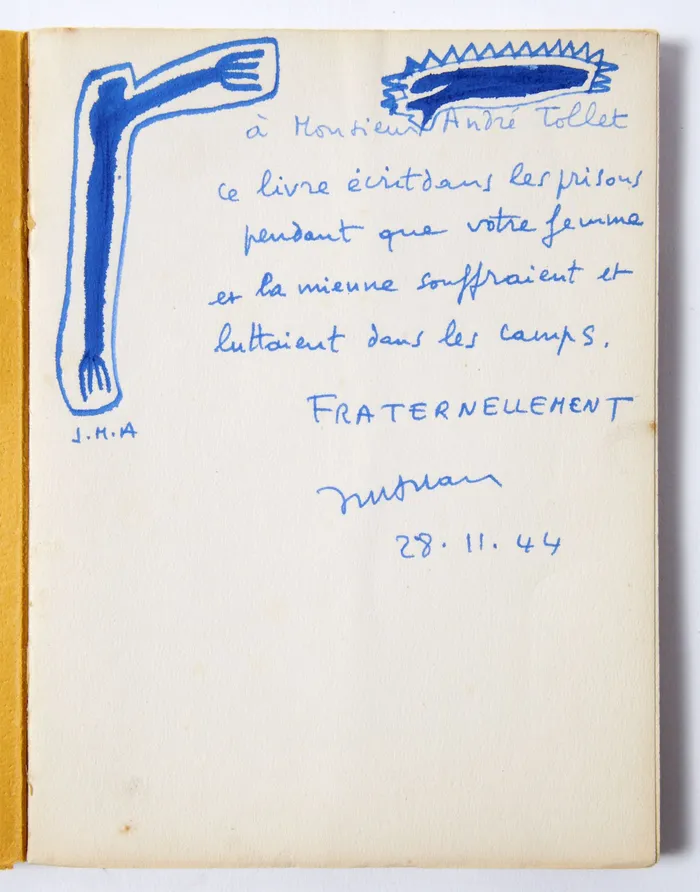 à Monsieur André Tollet
ce livre écrit dans les prisons
pendant que votre femme
et la mienne souffraient et
luttaient dans les camps.
FRATERNELLEMENT
J.M.A
28.11.44